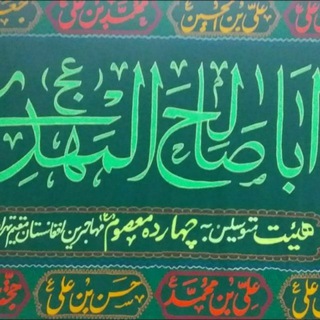 علی بن الحسین محمد بن علی جعفر
اباصالح المهدی عج
هیئت متوسلین به چهارده معصوم مهاجرین افغانستان مقیم تهران
حسن بن علی علی بن محمد حسن بن علی حجة